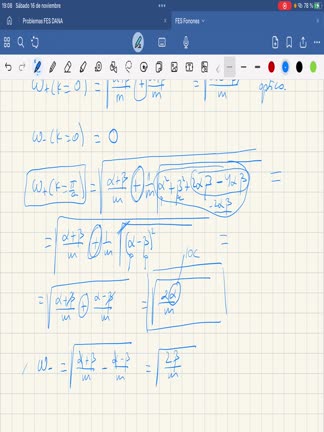 19:08 Sábado 16 de noviembre
78 %
Problemas FES DANA
FES Fonones
W+(k=0) = √ α+β/m + = √ /m óptico.
W-(k=0) = 0
W+(k=π/2) = √(α+β/m + 1/m √(α² + β² + 2αβ - 4αβ)) =
-2αβ
= √(α+β/m + 1/m √(α-β)²) =
= √(α+β/m + α-β/m) = √(2α/m)
W- = √(α+β/m - α-β/m) = √(2β/m)